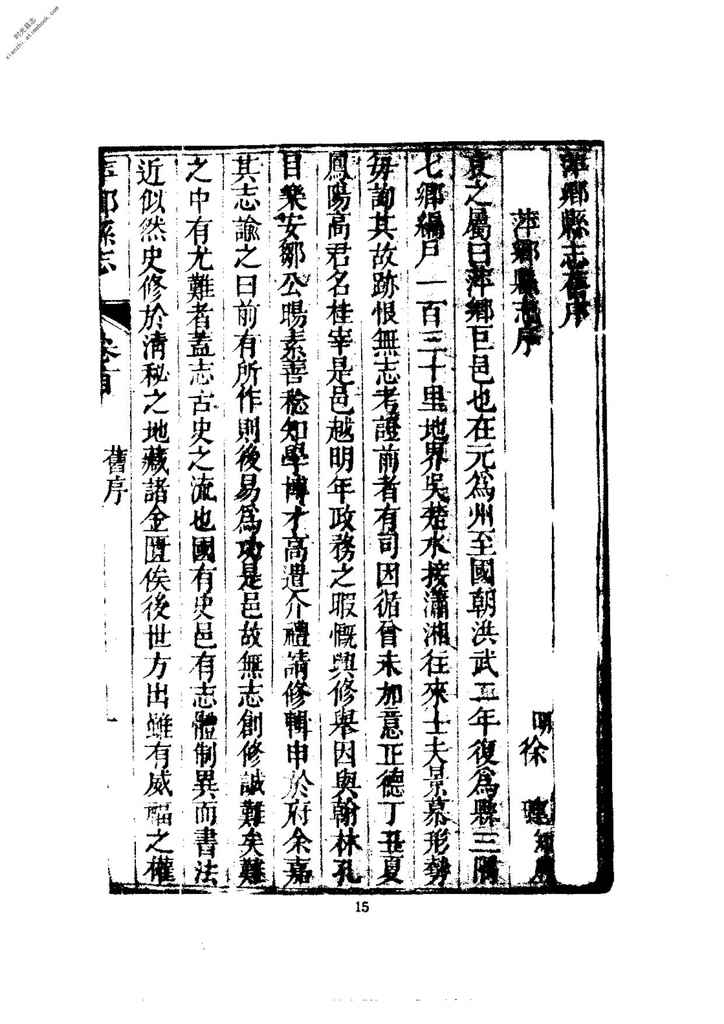 时光县志
xianzhi.atimebook.com
萍鄉縣志舊序
萍鄉縣志序
明 徐 璉 知府
袁之屬曰萍鄉巨邑也在元爲州至國朝洪武二年復爲縣三隅
七鄉編戸一百三十里地界吳楚水接瀟湘往來士夫景慕形勢
毎詢其故跡恨無志考證前者有司因循曾未加意正德丁丑夏
鳳陽高君名桂宰是邑越明年政務之暇慨與修舉因與翰林孔
目樂安鄒公暘素善稔知學博才高遣介禮請修輯申於府余嘉
其志諭之曰前有所作則後易爲功是邑故無志創修誠難矣難
之中有尤難者蓋志古史之流也國有史邑有志體制異而書法
近似然史修於淸秘之地藏諸金匱俟後世方出雖有威福之權
萍鄉縣志
卷首
舊序
一
15